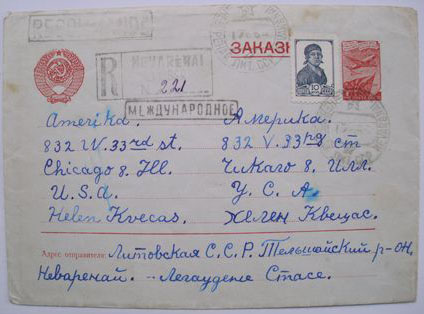 RECOMMANDÉ
ЗАКАЗНОЕ
R NEVARĖNAI
N 221
МЕЖДУНАРОДНОЕ
10
Amerika. Америка.
832 W. 33rd st. 832 V. 33rd ст
Chicago 8. Ill. Чикаго 8. Илл.
U.S.A. У. С. А.
Helen Kvecas. Хелен Квецас.
Адрес отправителя: Литовская С.С.Р. Тельшайский р-он,
Неваренай. - Легаудене Стасе.